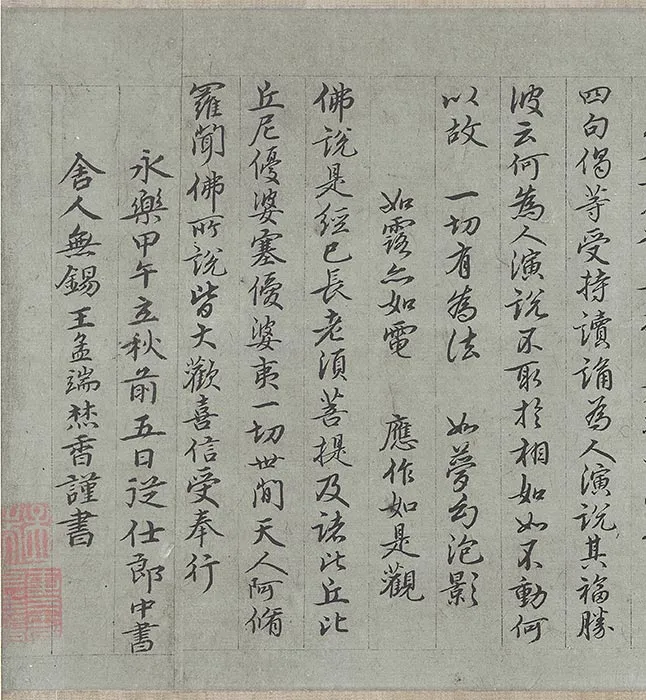 四句偈等受持讀誦為人演說其福勝
彼云何為人演說不取於相如如不動何
以故 一切有為法 如夢幻泡影
如露亦如電 應作如是觀
佛說是經已長老須菩提及諸比丘比
丘尼優婆塞優婆夷一切世間天人阿脩
羅聞佛所說皆大歡喜信受奉行
永樂甲午立秋前五日從仕郎中書
舍人無錫王孟端焚香謹書